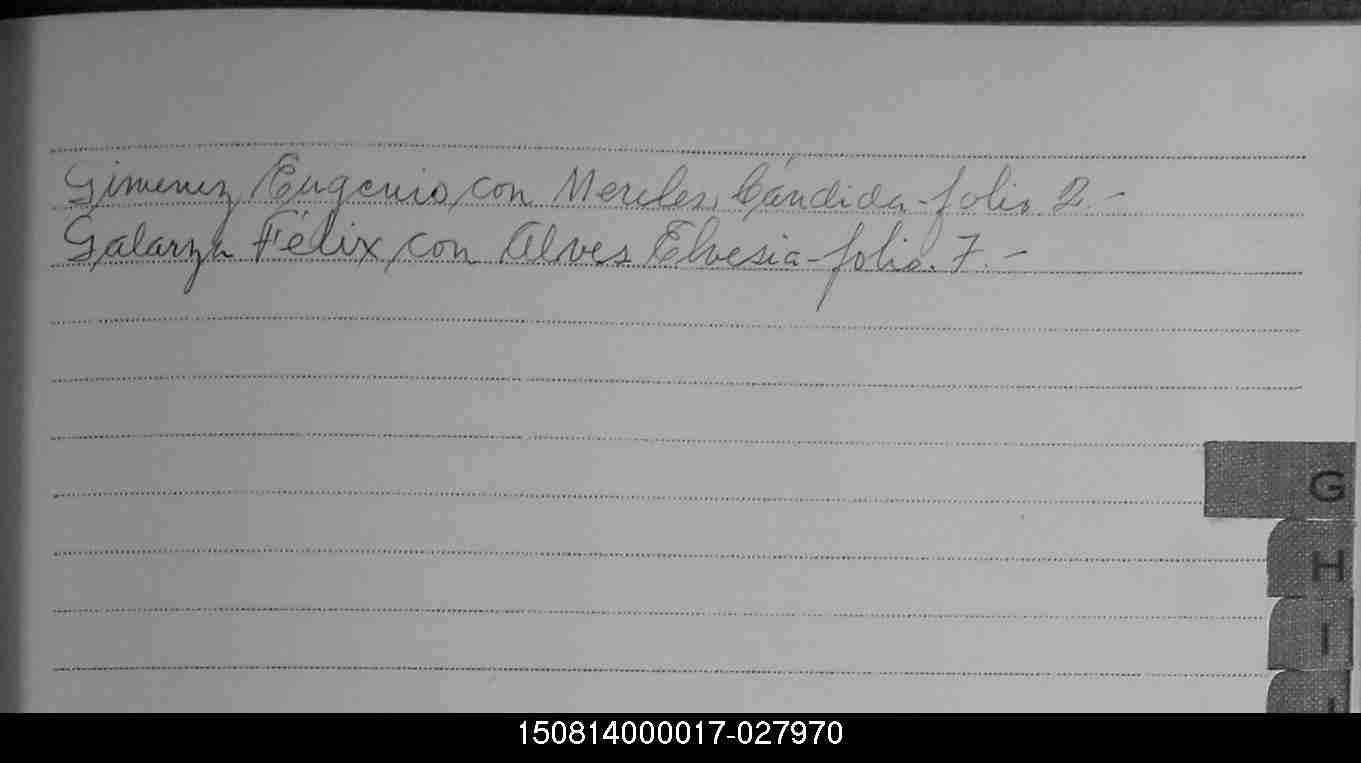 Gimenez Eugenio con Mereles, Cándida - folio 2.-
Galarza Félix con Alves Elvesia - folio. 7.-
G
H
I
150814000017-027970